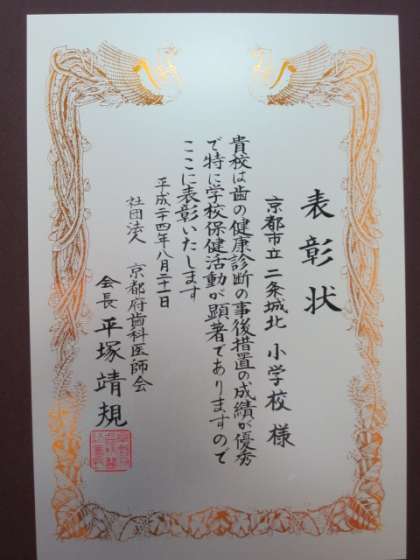 表彰状
京都市立 二条城北 小学校 様
貴校は歯の健康診断の事後措置の成績が優秀
で特に学校保健活動が顕著でありますので
ここに表彰いたします
平成二十四年八月二十日
社団法人 京都府歯科医師会
会長 平塚靖規